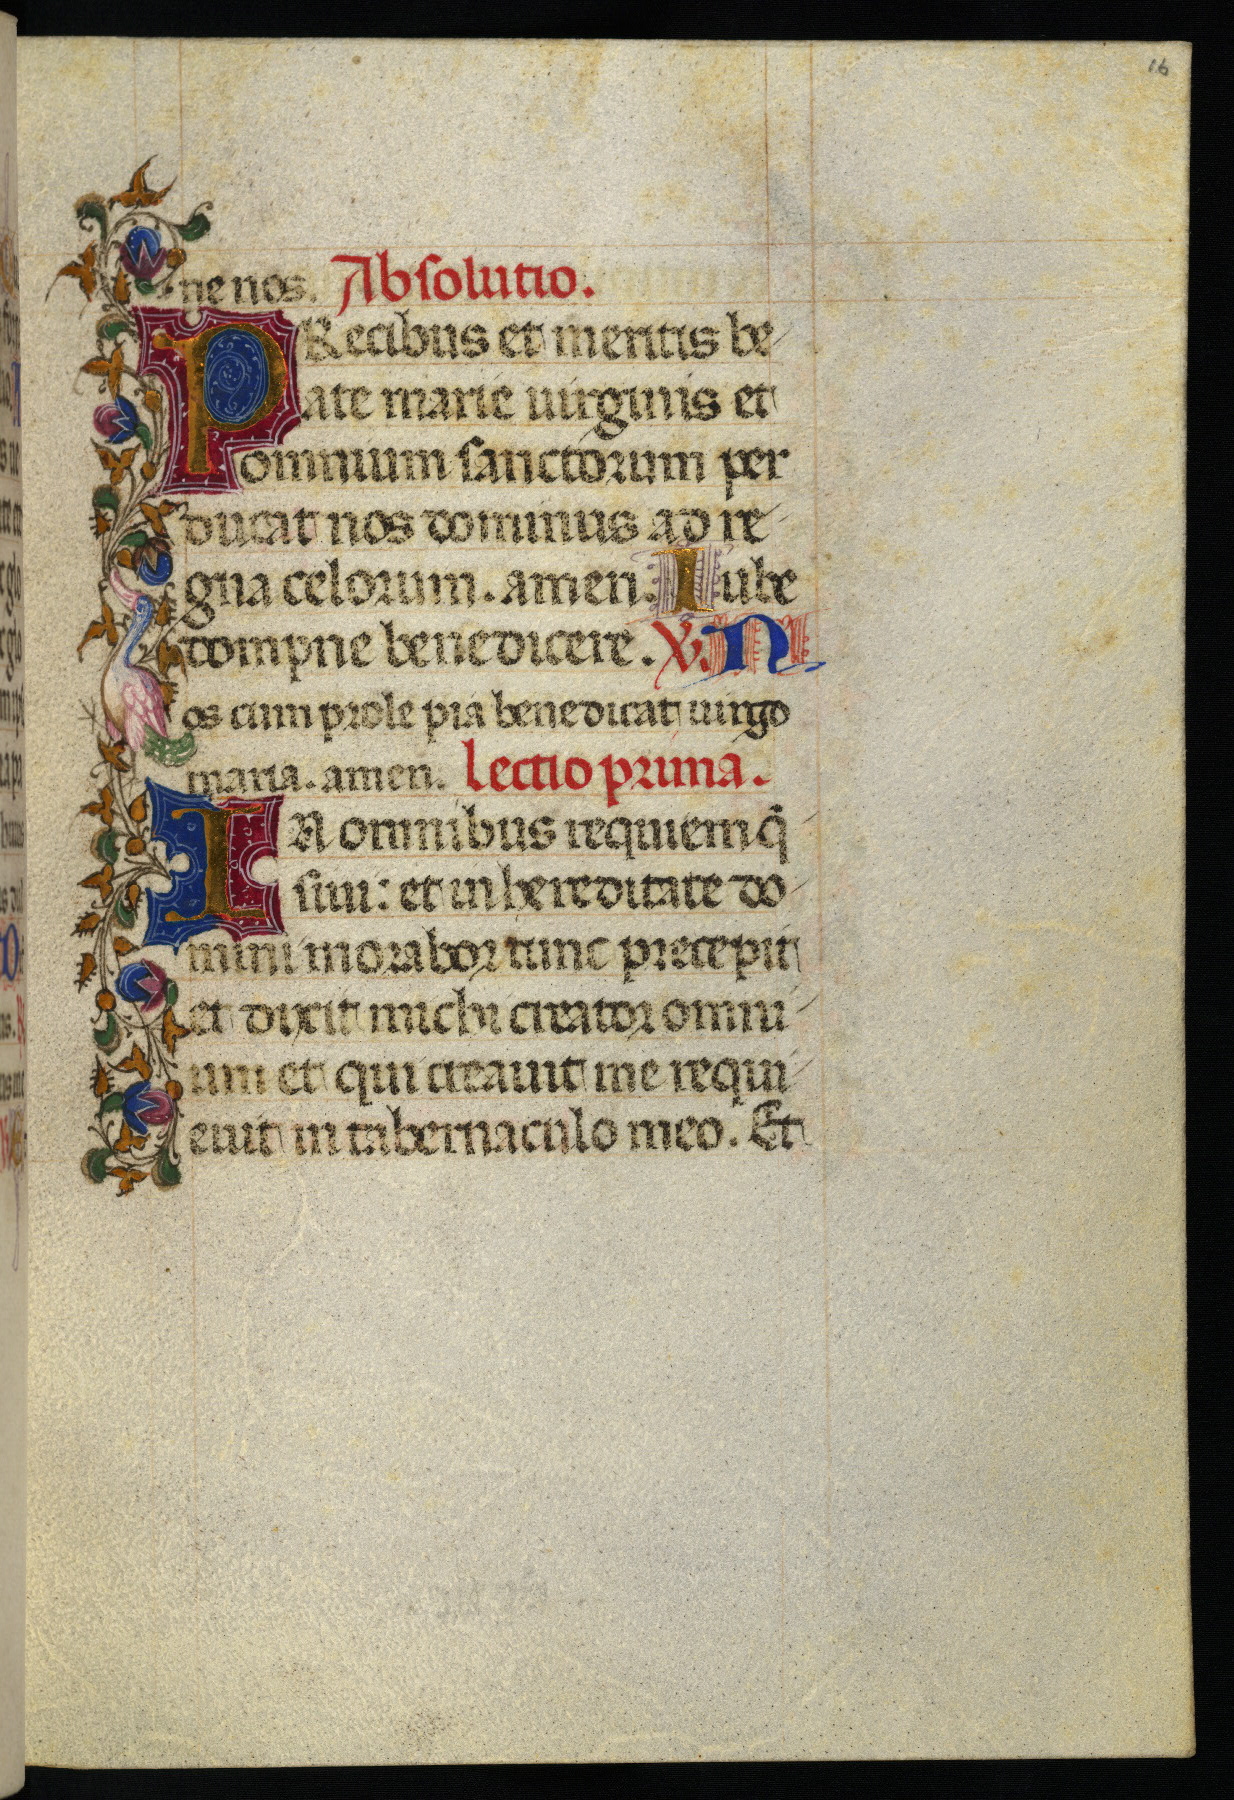 16
ne nos. Absolutio.
PRecibus et meritis be
ate marie uirginis et
omnium sanctorum per
ducat nos dominus ad re
gna celorum. amen. Iube
dompne benedicere. V. N
os cum prole pia benedicat uirgo
maria. amen. Lectio prima.
IN omnibus requiem q̄
siui: et in hereditate do
mini morabor tunc precepit
et dixit michi creator omni
um et qui creauit me requi
euit in tabernaculo meo. Et